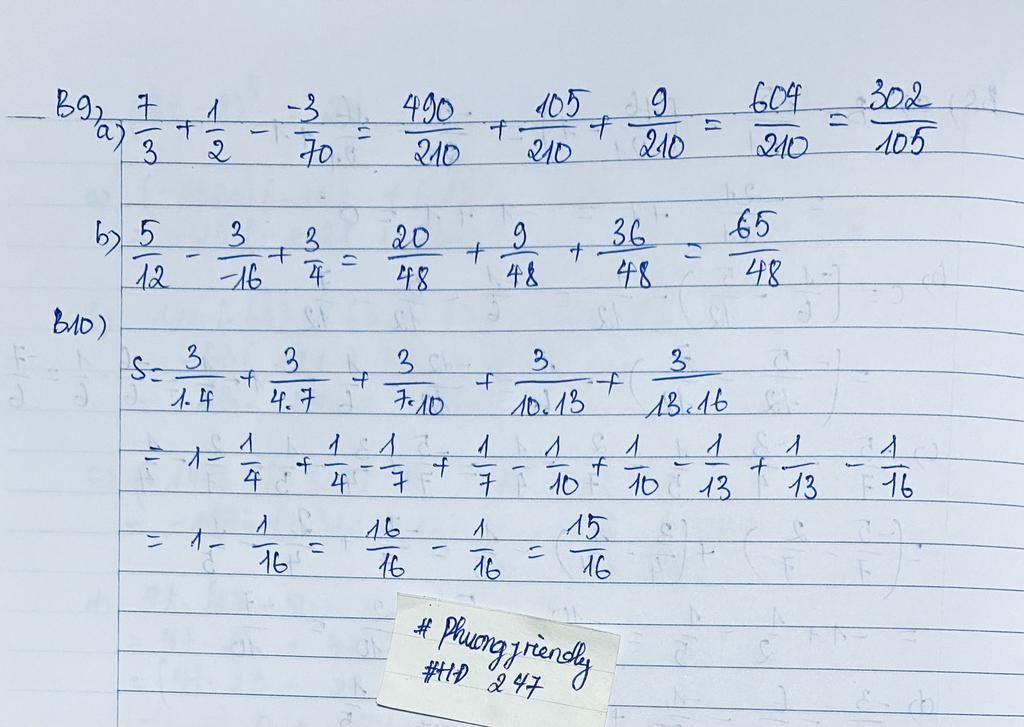 B9, a) 7/3 + 1/2 - -3/70 = 490/210 + 105/210 + 9/210 = 604/210 = 302/105
b) 5/12 - 3/-16 + 3/4 = 20/48 + 9/48 + 36/48 = 65/48
B10)
S = 3/1.4 + 3/4.7 + 3/7.10 + 3/10.13 + 3/13.16
= 1 - 1/4 + 1/4 - 1/7 + 1/7 - 1/10 + 1/10 - 1/13 + 1/13 - 1/16
= 1 - 1/16 = 16/16 - 1/16 = 15/16
# Phuongfriendly
#HD 247